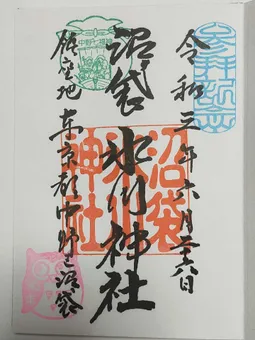 令和三年六月二十八日
沼袋氷川神社
鎮座地 東京都中野区沼袋
沼袋
氷川
神社